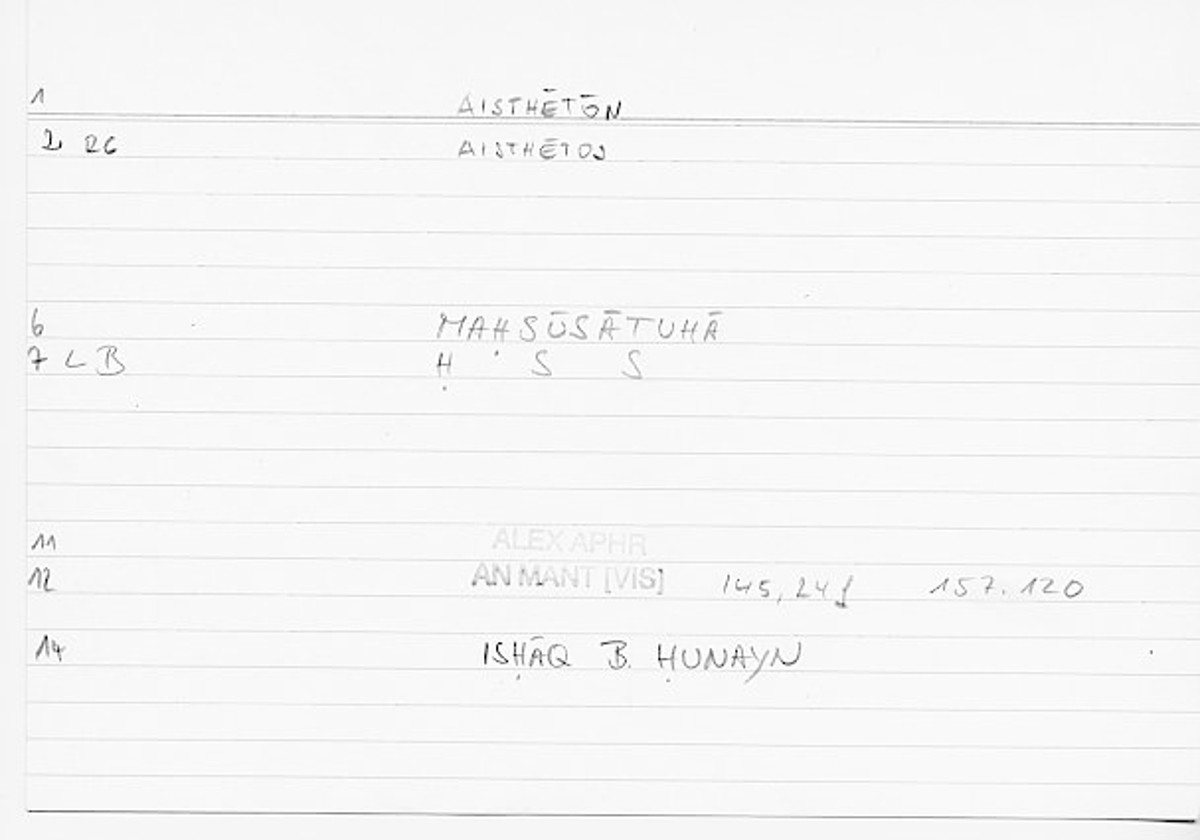 1 AISTHĒTŌN
2 26 AISTHĒTOS
6 MAḤSŪSĀTUHĀ
7 L B Ḥ S S
11 ALEX APHR
12 AN MANT [VIS] 145,24f 157.120
14 ISḤĀQ B. ḤUNAYN